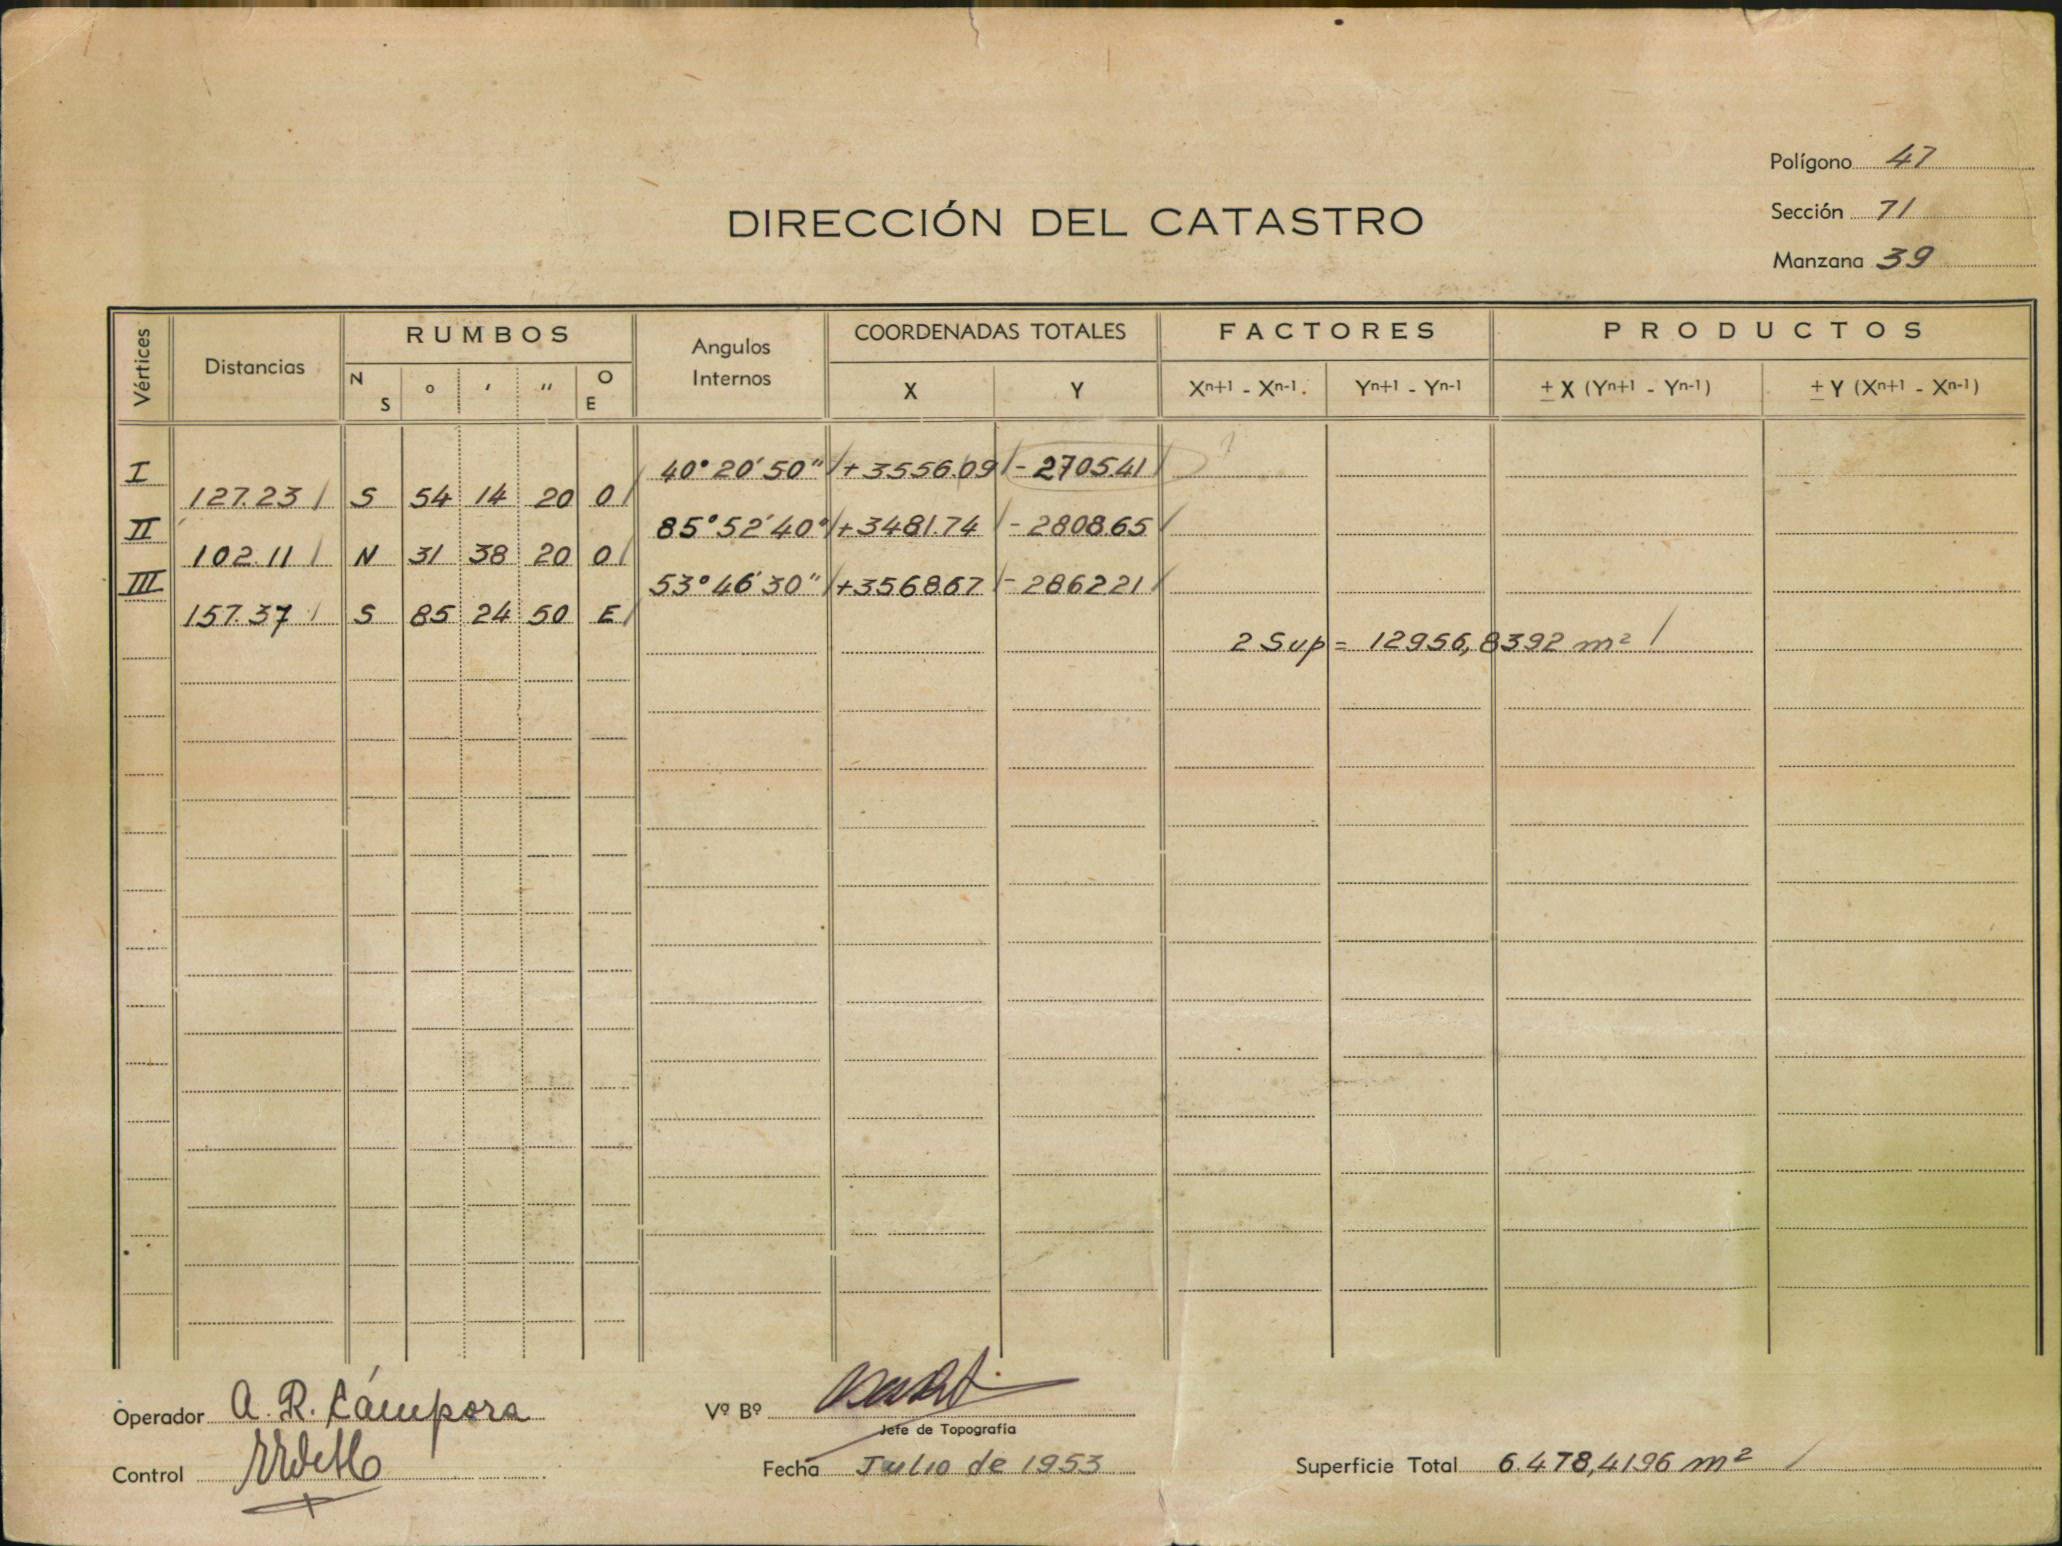 Polígono 47
DIRECCIÓN DEL CATASTRO
Sección 71
Manzana 39
Vértices Distancias RUMBOS Angulos Internos COORDENADAS TOTALES FACTORES PRODUCTOS
N S ° ' " O E X Y Xn+1 - Xn-1. Yn+1 - Yn-1 ± X (Yn+1 - Yn-1) ± Y (Xn+1 - Xn-1)
I 40° 20' 50" / + 3556.09 / - 2705.41 /
127.23 / S 54 14 20 O /
II 85° 52' 40" / + 3481.74 / - 2808.65 /
102.11 / N 31 38 20 O /
III 53° 46' 30" / + 3568.67 / - 2862.21 /
157.37 / S 85 24 50 E /
2 Sup = 12956,8392 m² /
Operador A. R. Cámpora
Vº Bº
Jefe de Topografía
Control
Fecha Julio de 1953
Superficie Total 6.478,4196 m² /